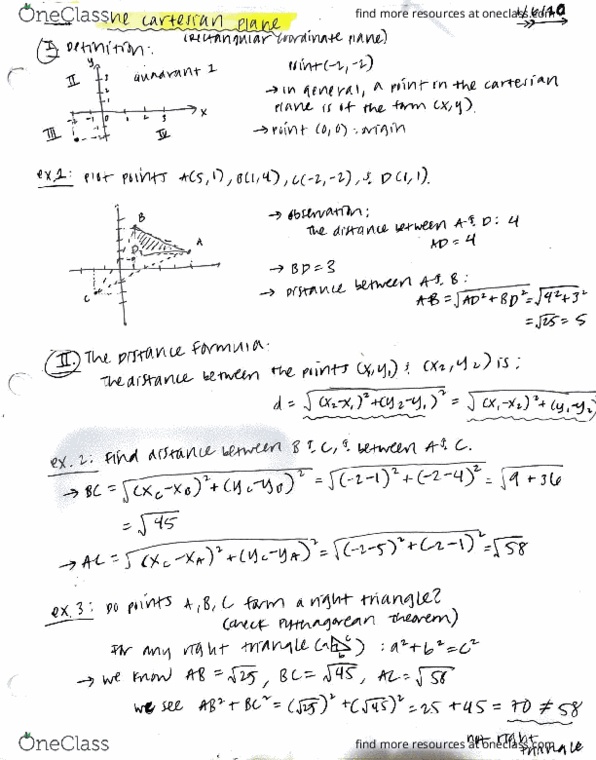 OneClass
find more resources at oneclass.com
The Cartesian Plane
(rectangular coordinate plane)
I Definition:
y
II
quadrant I
x
III
IV
point (-2,-2)
→ in general, a point in the cartesian
plane is of the form (x,y).
→ point (0,0) = origin
ex.1: plot points A(5,1), B(1,4), C(-2,-2), & D(1,1).
B
A
D
C
→ observation:
The distance between A & D: 4
AD = 4
→ BD = 3
→ Distance between A & B:
AB = √AD² + BD² = √4² + 3²
= √25 = 5
II. The Distance Formula:
The distance between the points (x, y₁) & (x₂, y₂) is:
d = √(x₂-x₁)² + (y₂-y₁)² = √(x₁-x₂)² + (y₁-y₂)
ex. 2: Find distance between B & C, & between A & C.
→ BC = √(xc-xB)² + (yc-yB)² = √(-2-1)² + (-2-4)² = √9 + 36
= √45
→ AC = √(xc-xA)² + (yc-yA)² = √(-2-5)² + (-2-1)² = √58
ex. 3: Do points A, B, C form a right triangle?
(check Pythagorean Theorem)
For any right triangle (a c b) : a² + b² = c²
→ we know AB = √25, BC = √45, AC = √58
we see AB² + BC² = (√25)² + (√45)² = 25 + 45 = 70 ≠ 58
not right
triangle
OneClass
find more resources at oneclass.com